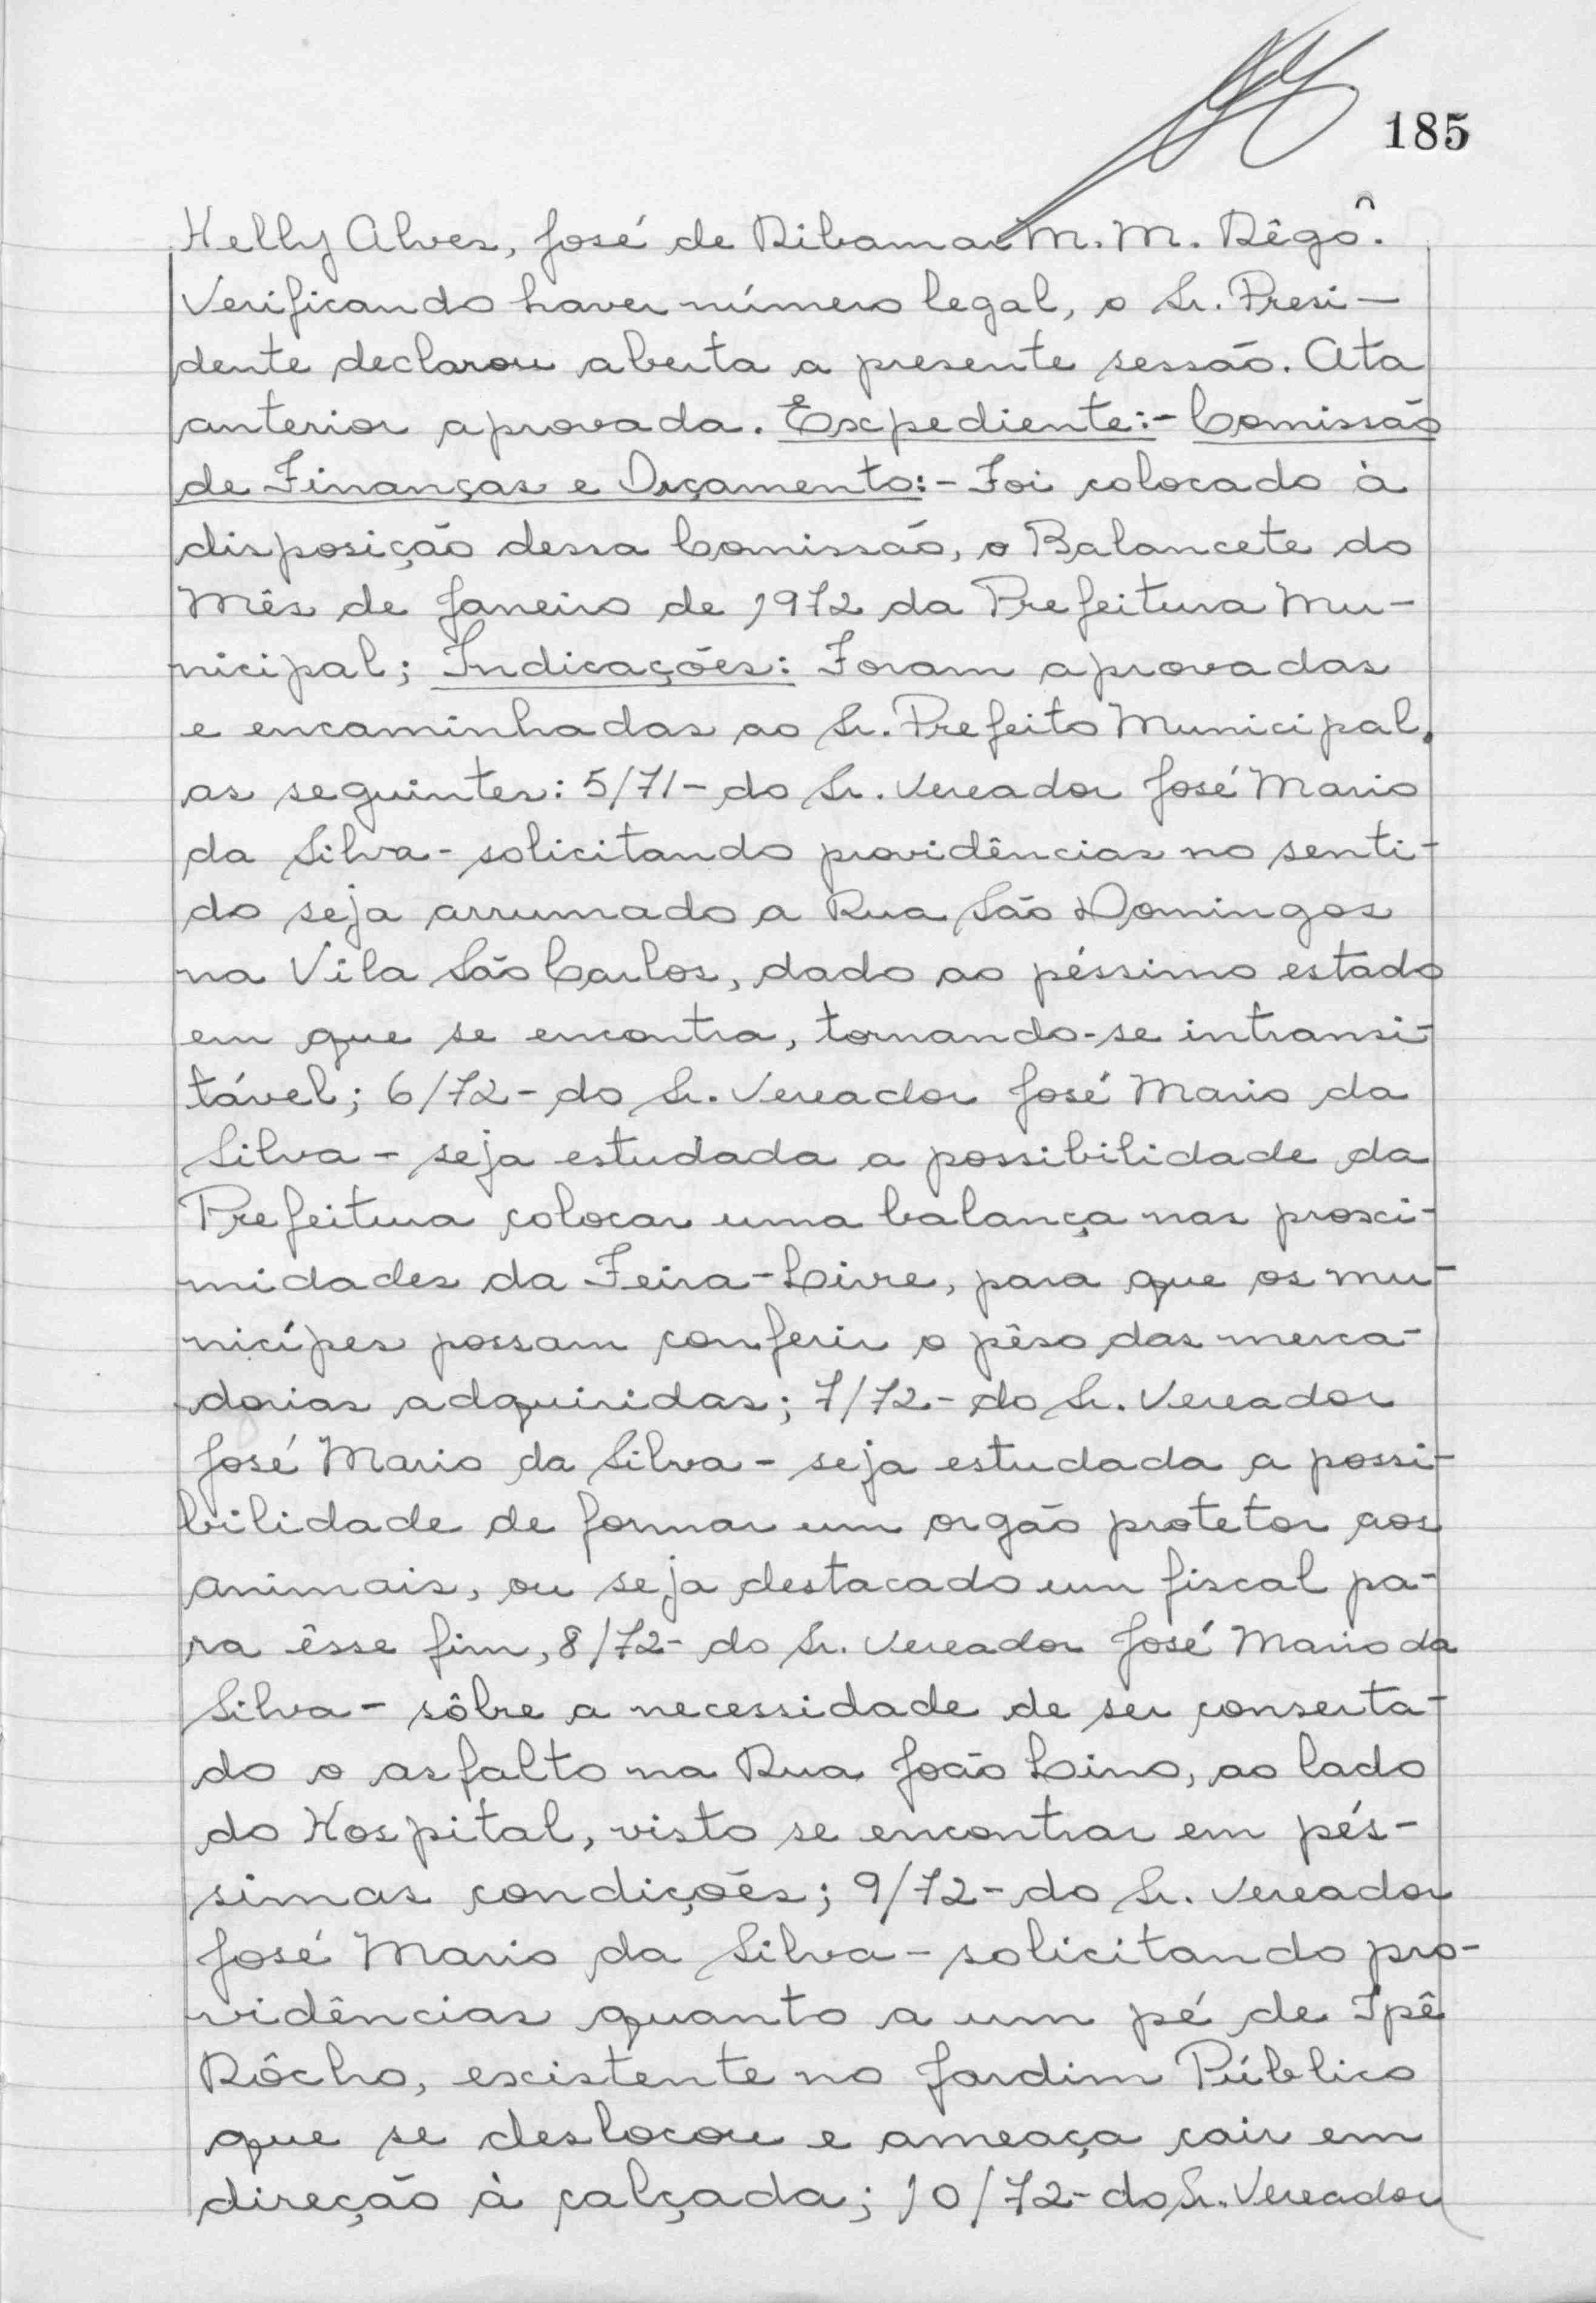 185
Helly Alves, José de Ribamar M. M. Rêgo.
Verificando haver número legal, o Sr. Presi-
dente declarou aberta a presente sessão. Ata
anterior aprovada. Expediente:- Comissão
de Finanças e Orçamento:- Foi colocado à
disposição dessa Comissão, o Balancete do
Mês de Janeiro de 1972 da Prefeitura Mu-
nicipal; Indicações: Foram aprovadas
e encaminhadas ao Sr. Prefeito Municipal,
as seguintes: 5/71- do Sr. Vereador José Mario
da Silva - solicitando providências no senti-
do seja arrumado a Rua São Domingos
na Vila São Carlos, dado ao péssimo estado
em que se encontra, tornando-se intransi-
tável; 6/72- do Sr. Vereador José Mario da
Silva - seja estudada a possibilidade da
Prefeitura colocar uma balança nas proxi-
midades da Feira-Livre, para que os mu-
nicípes possam conferir o pêso das merca-
dorias adquiridas; 7/72- do Sr. Vereador
José Mario da Silva - seja estudada a possi-
bilidade de formar um orgão protetor aos
animais, ou seja destacado um fiscal pa-
ra êsse fim, 8/72- do Sr. Vereador José Mario da
Silva - sôbre a necessidade de ser conserta-
do o asfalto na Rua João Lino, ao lado
do Hospital, visto se encontrar em pés-
simas condições; 9/72- do Sr. Vereador
José Mario da Silva - solicitando pro-
vidências quanto a um pé de Ipê
Rôcho, existente no Jardim Público
que se deslocou e ameaça cair em
direção à calçada; 10/72- do Sr. Vereador